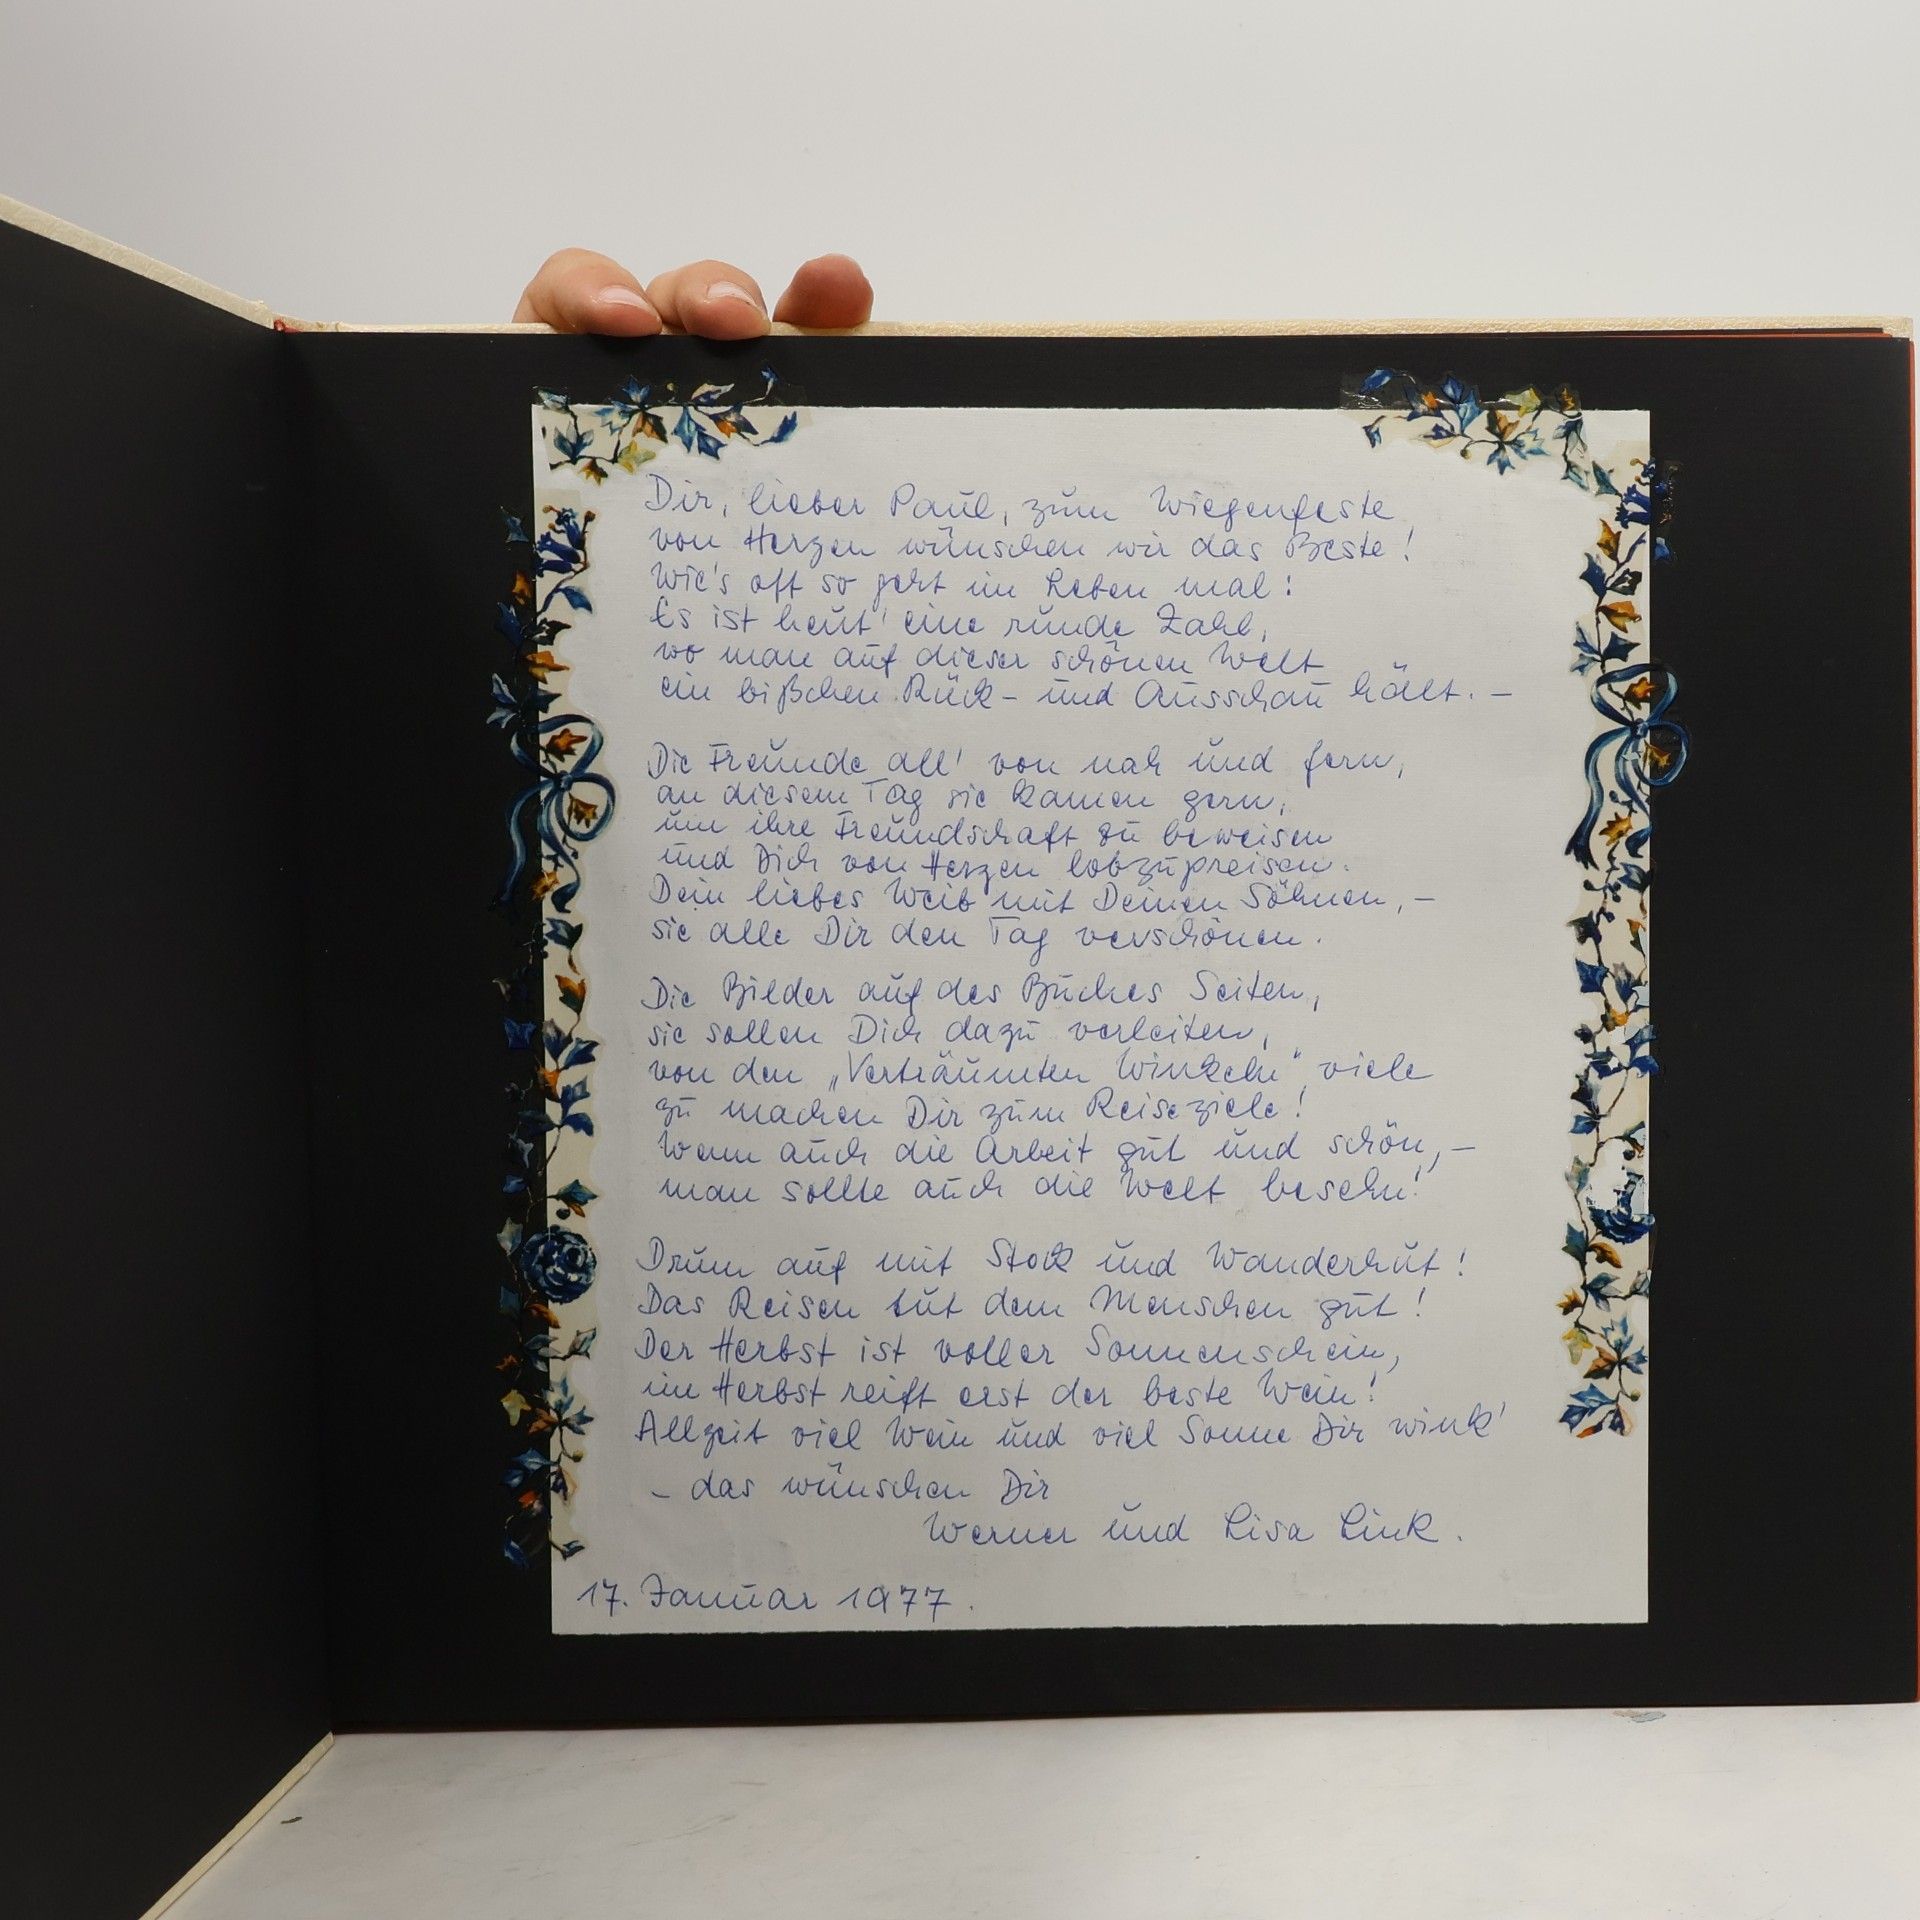 Dir, lieber Paul, zum Wiegenfeste
von Herzen wünschen wir das Beste!
Wie's oft so geht im Leben mal:
Es ist heut' eine runde Zahl,
wo man auf dieser schönen Welt
ein bißchen Rück- und Ausschau hält. –
Die Freunde all' von nah und fern,
an diesem Tag sie kamen gern,
um ihre Freundschaft zu beweisen
und Dich von Herzen lobzupreisen.
Dein liebes Weib mit Deinen Söhnen, –
sie alle Dir den Tag verschönen.
Die Bilder auf des Buches Seiten,
sie sollen Dich dazu verleiten,
von den „Verträumten Winkeln" viele
zu machen Dir zum Reiseziele!
Wenn auch die Arbeit gut und schön, –
man sollte auch die Welt besehn!
Drum auf mit Stock und Wanderhut!
Das Reisen tut dem Menschen gut!
Der Herbst ist voller Sonnenschein,
im Herbst reift erst der beste Wein!
Allzeit viel Wein und viel Sonne Dir wink'
– das wünschen Dir
Werner und Lisa Link.
17. Januar 1977.